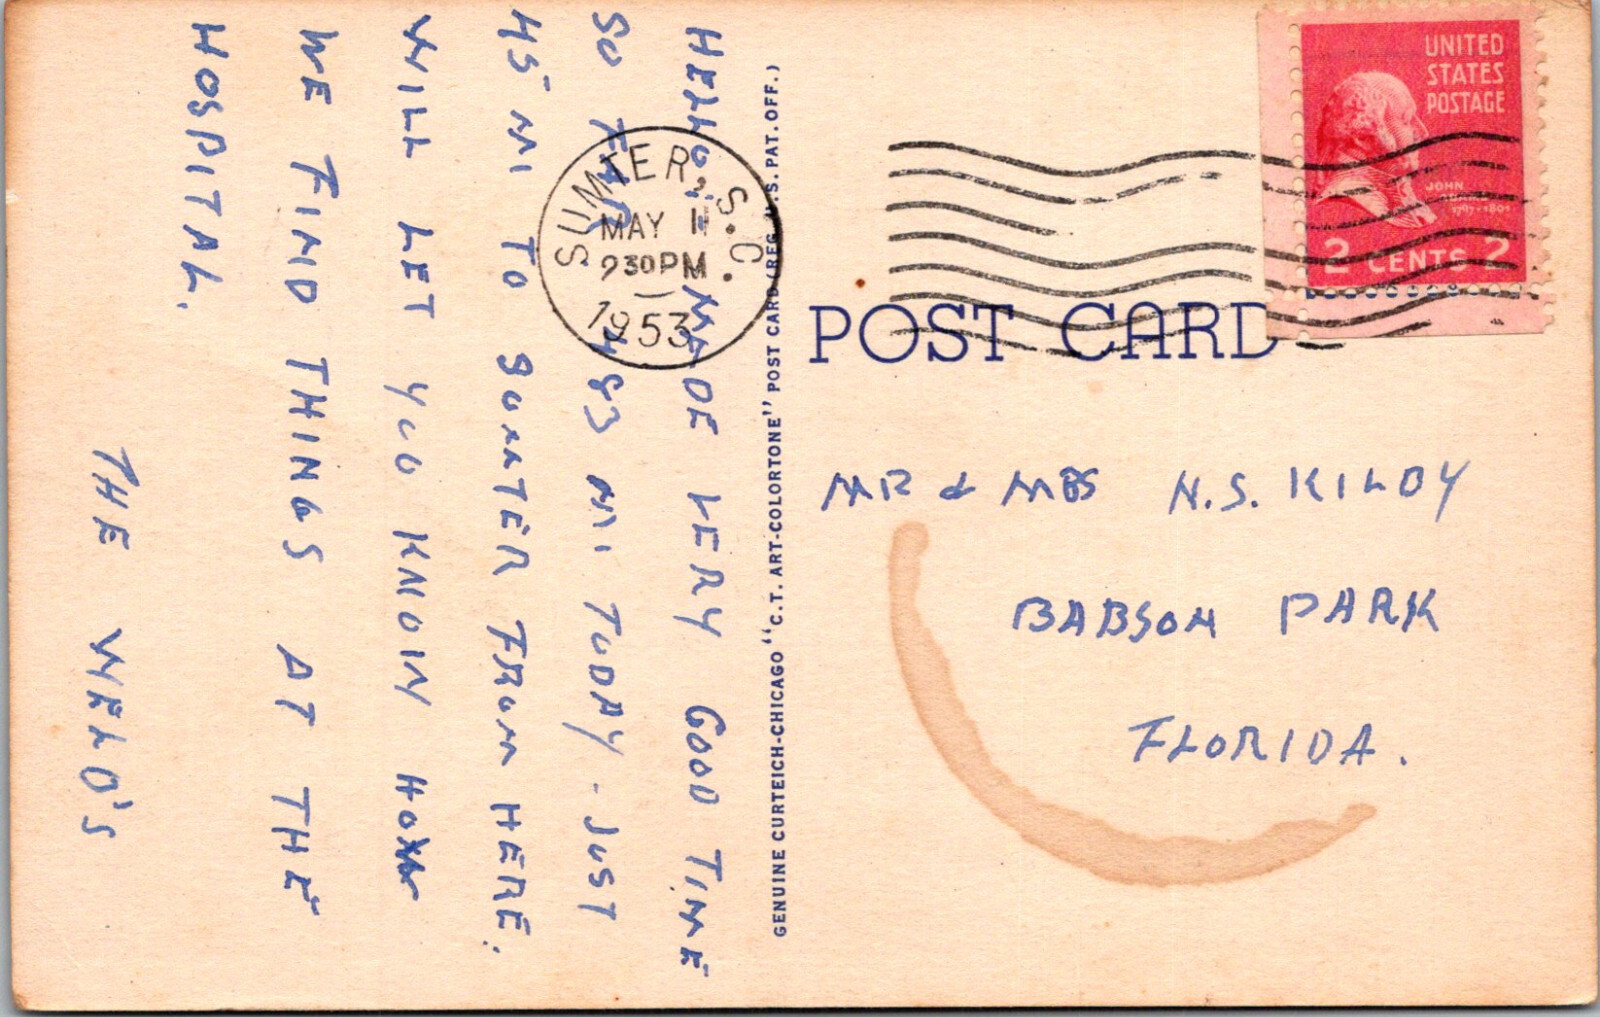 HELLO:- MADE VERY GOOD TIME
SO FAR 483 MI TODAY - JUST
45 MI TO SUMTER FROM HERE.
WILL LET YOU KNOW HOW
WE FIND THINGS AT THE
HOSPITAL.
THE WELD'S
GENUINE CURTEICH-CHICAGO "C.T. ART-COLORTONE" POST CARD (REG. U.S. PAT. OFF.)
SUMTER, S.C.
MAY 11
930PM
1953
UNITED
STATES
POSTAGE
JOHN
ADAMS
1797-1801
2 CENTS 2
POST CARD
MR & MRS N.S. KILBY
BABSON PARK
FLORIDA.